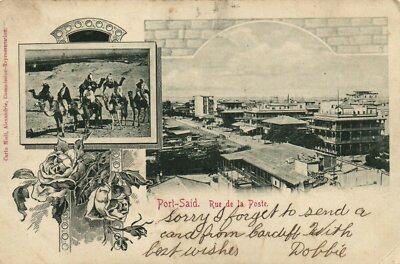 Carlo Mieli, Alexandria, Commission-Représentation.
Port-Said. Rue de la Poste.
Sorry I forget to send a
card from Cardiff With
best wishes Dobbie